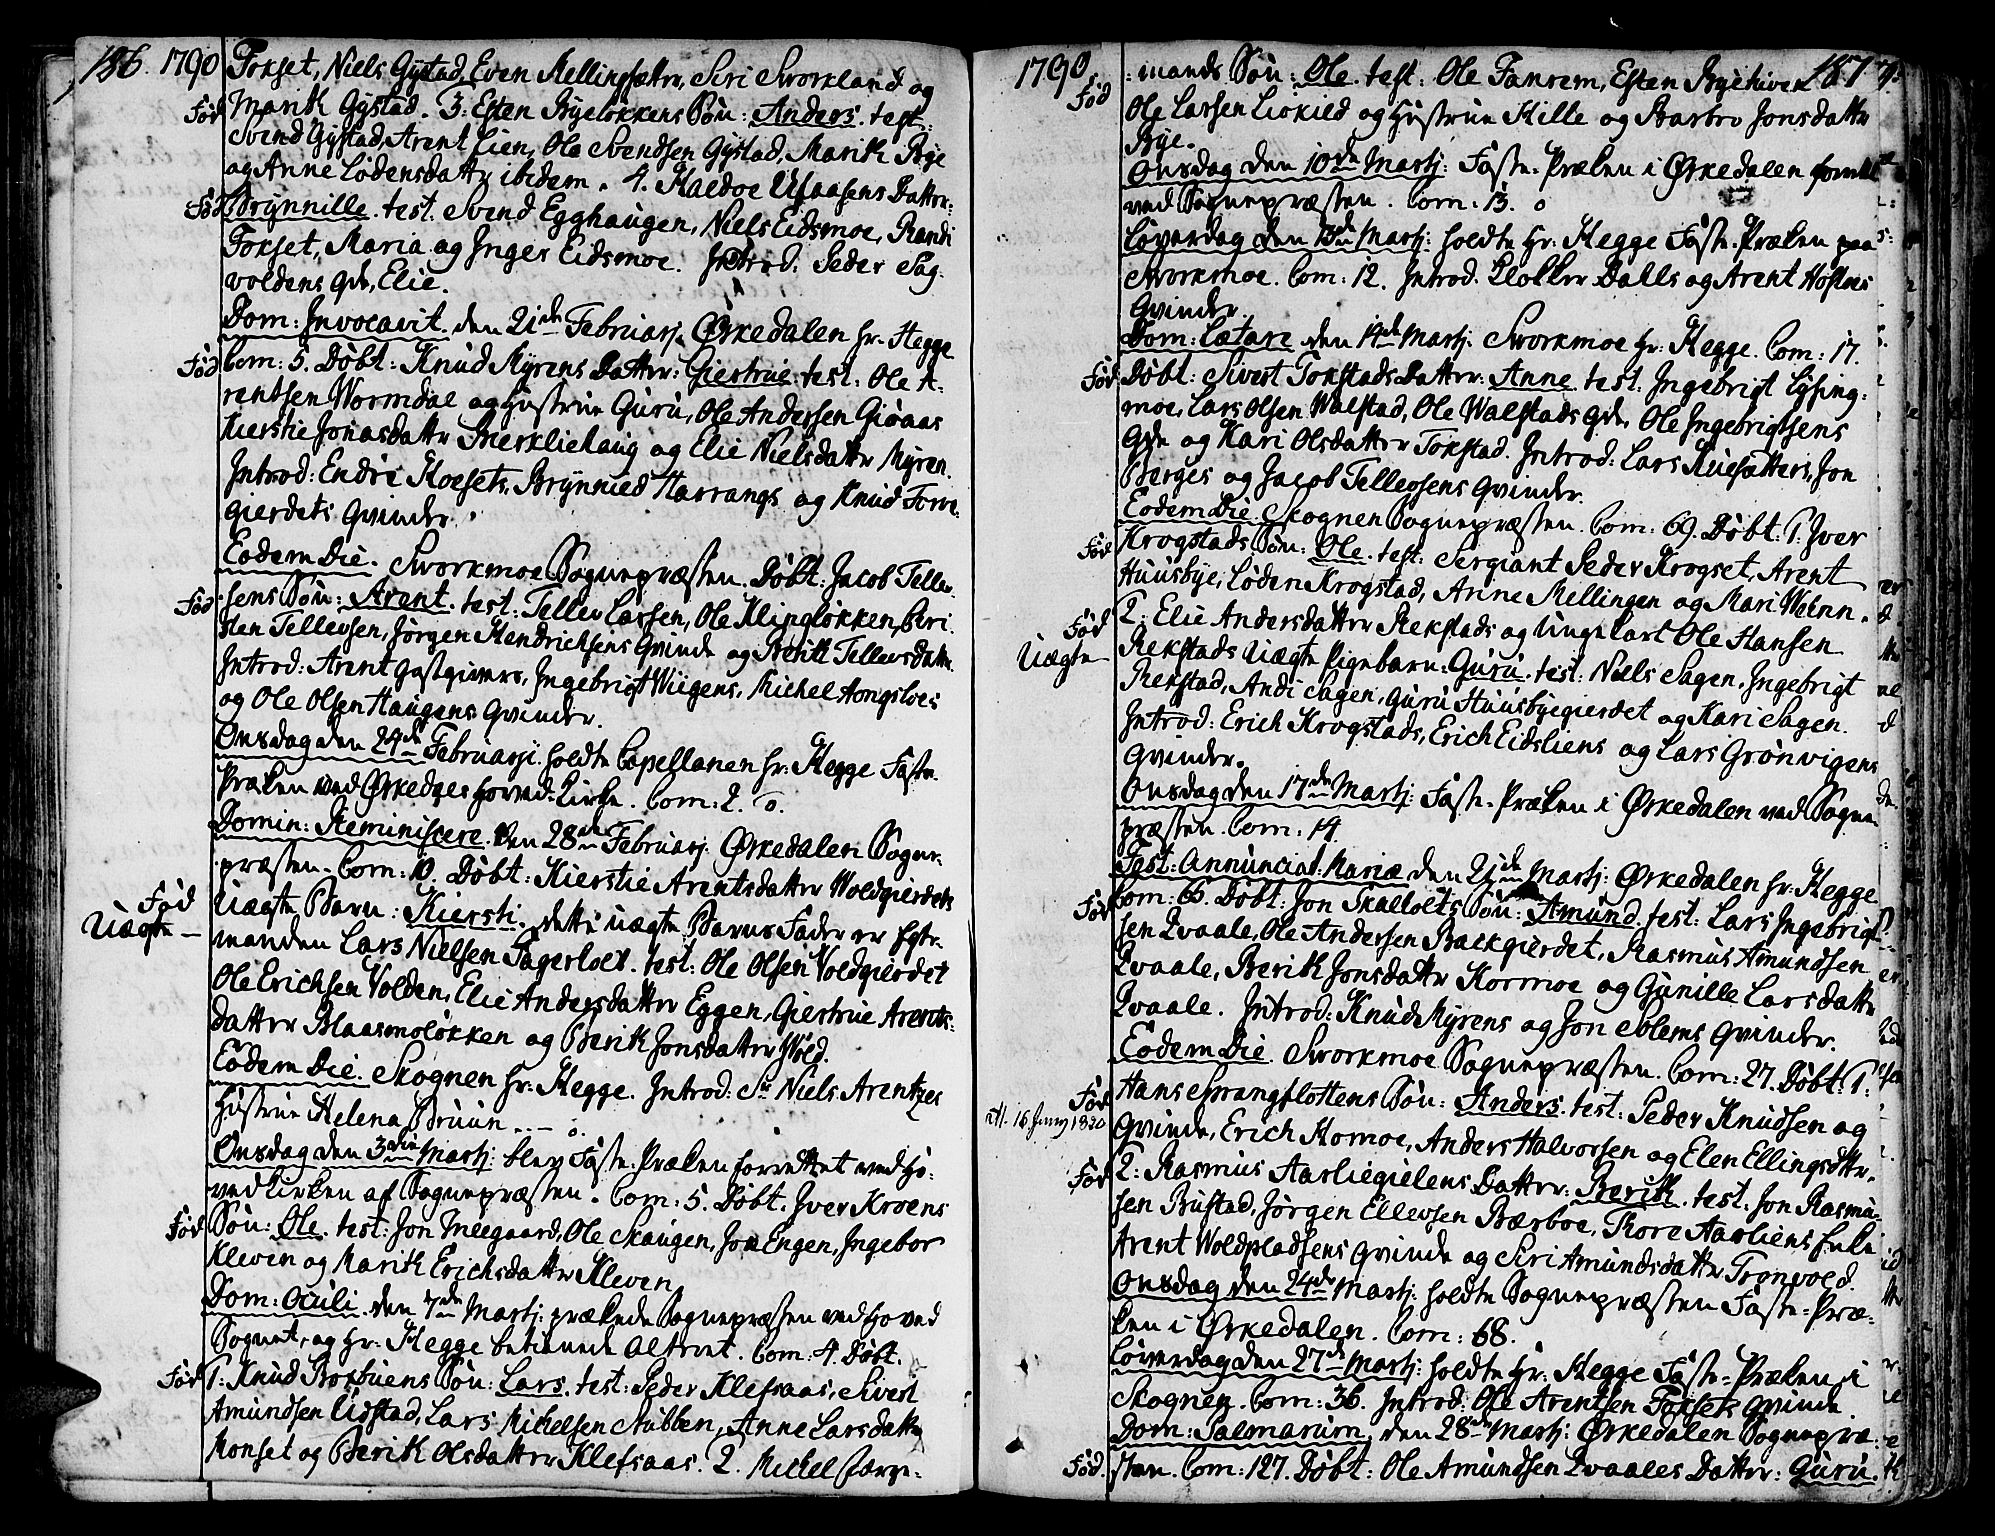 186. 1790 Forset, Niels Gÿstad, Even Mellingsætter, Siri Svorkland og
Fød Marith Gÿstad. 3. Esten Byeløkkens Søn: Anders. test:
Svend Gÿstad, Arent Lien, Ole Svendsen Gÿstad, Marith Bye
og Anne Lodensdatter ibidem. 4. Haldoe Ufaasens Datter:
Fød Brynnille. test: Svend Egghaugen, Niels Eidsmoe, Randi
Forset, Maria og Inger Eidsmoe. Introd: Peder Sag-
voldens qde, Elie.
Dom: Invocavit. den 21de Februarj. Ørkedalen hr. Hegge
Fød Com: 5. Døbt: Knud Myrens Datter: Giertrue. test: Ole A-
rentsen Wormdal og Hustrue Guru, Ole Andersen Gioaas
Kierstie Jonasdatter Merkliehaug og Elie Nielsdatter Myren.
Introd: Endre Hoesets, Brynnild Harrangs og Knud Forre-
gierdets Qvinder.
Eodem Die. Svorkmoe Sognepræsten. Døbt: Jacob Tellev-
Fød sens Søn: Arent. test: Tellev Larsen, Ole Klingløkken, Cari-
sten Tellevsen, Jørgen Hendrichsens Qvinde og Berith Tellevsdatter.
Introd: Arent Gastgivers, Ingebrigt Wiigens, Michel Aongsloes
og Ole Olsen Haugens Qvinder.
Onsdag den 24de Februarji holdte Capellanen hr: Hegge Faste-
Præken ved Ørkedals Hoved-Kirke. Com: 2. o.
Domin: Reminiscere. den 28de Februarj. Ørkedalen Sogne-
præsten. Com: 10. Døbt: Kierstie Arentsdatter Woldgierdets
Fød
Uægte — Uægte Barn: Kiersti. dette uægte Barns Fader er Egte-
manden Lars Nielsen Fagerholt. test: Ole Olsen Voldgierdet
Ole Erichsen Volden, Elie Andersdatter Eggen, Giertrue Arents-
datter Blaasmoløkken og Berith Jonsdatter Wold.
Eodem Die. Skognen hr. Hegge. Introd: Sr Niels Arentzes
Hustrue Helena Bruun. .. — o.
Onsdag den 3die Martj: blev Faste-Præken forrettet ved Ho-
vedkirken af Sognepræsten. Com: 5. Døbt: Iver Kroens
Fød Søn: Ole. test: Jon Meegaard, Ole Skaugen, Jon Engen, Ingebor
Kleven og Marith Erichsdatter Kleven.
Dom: Oculi. den 7de Martj: prækede Sognepræsten ved Hoved
Sognet, og hr. Hegge betiende Alteret. Com: 4. Døbt.
Fød 1. Knud Bokbuens Søn: Lars. test: Peder Klefsaas, Sivert
Amundsen Udstad, Lars Michelsen Stubben, Anne Larsdatter
Monset og Berith Olsdatter Klefsaas. 2. Michel Færge-
1790 187
Fød -mands Søn: Ole. test: Ole Fanrem, Esten Byehiven
Ole Larsen Liokild og Hustrue Kille og Barbro Jonsdatter
Bye.
Onsdag den 10de Martj: Faste-Præken i Ørkedalen
ved Sognepræsten. Com: 13. o
Løverdag den 13de Martj: holdte hr: Hegge Faste-Præken paa
Svorkmoe. Com: 12. Introd. Klokker Dalls og Arent Hofsnes
Qvinder.
Dom: Lætare den 14de Martj. Svorkmoe hr: Hegge. Com: 17.
Fød Døbt: Sivert Forstads Datter: Anne. test: Ingebrigt Lysing-
moe, Lars Olsen Walstad, Ole Walstads qde, Ole Ingebrigtsens
qde og Kari Olsdatter Forstad. Introd: Lars Ruesætters, Jon
Berges og Jacob Tellevsens Qvinder.
Eodem Die. Skognen Sognepræsten. Com: 69. Døbt: 1. Iver
Fød Krogstads Søn: Ole. test: Sergiant Peder Krogset, Arent
Huusbye, Loden Krogstad, Anne Mellingen og Mari Wehnn.
Fød 2. Elie Andersdatter Rekstads og Ungekarl Ole Hansen
Uægte Rekstads Uægte Pigebarn: Guru. test: Niels Sagen, Ingebrigt
Rekstad, Andi Sagen, Guru Huusbyegierdet og Kari Sagen.
Introd: Erich Krogstads, Erich Eidsliens og Lars Grønvigens
Qvinder.
Onsdag den 17de Martj: Faste-Præken i Ørkedalen ved Sogne-
præsten. Com: 14.
Fest: Annunciat: Mariæ den 21de Martj: Ørkedalen hr: Hegge
Fød Com: 66. Døbt: Jon Skalholts Søn: Amund. test: Lars Ingebrigt-
sen Qvaale, Ole Andersen Backgierdet, Rasmus Amundsen
Qvaale, Berith Jonsdatter Kormoe og Gunille Larsdatter
Qvaale. Introd: Knud Myrens og Jon Solems Qvinder.
Eodem Die. Svorkmoe Sognepræsten. Com: 27. Døbt: 1.
Fød Hans Sprangflottens Søn: Anders. test: Peder Knudsen og
att. 16 Juny 1820 Qvinde, Erich Komoe, Anders Halvorsen og Elen Ellingsdtr.
Fød 2. Rasmus Aarliegielens Datter: Berith. test: Jon Rasmu-
sen Bustad, Jørgen Ellevsen Bærboe, Thore Aarliens
Arent Woldpladsens Qvinde og Siri Amundsdatter Tronvold.
Onsdag den 24de Martj: holdte Sognepræsten Faste-Præ-
ken i Ørkedalen. Com: 68.
Løverdag den 27de Martj: holdte hr: Hegge Faste-Præken i
Skognen. Com: 36. Introd: Ole Arentsen Forsets Qvinde.
Dom: Palmarum. den 28de Martj: Ørkedalen Sognepræ-
Fød. sten. Com: 127. Døbt: Ole Amundsen Qvaales Datter: Guru.